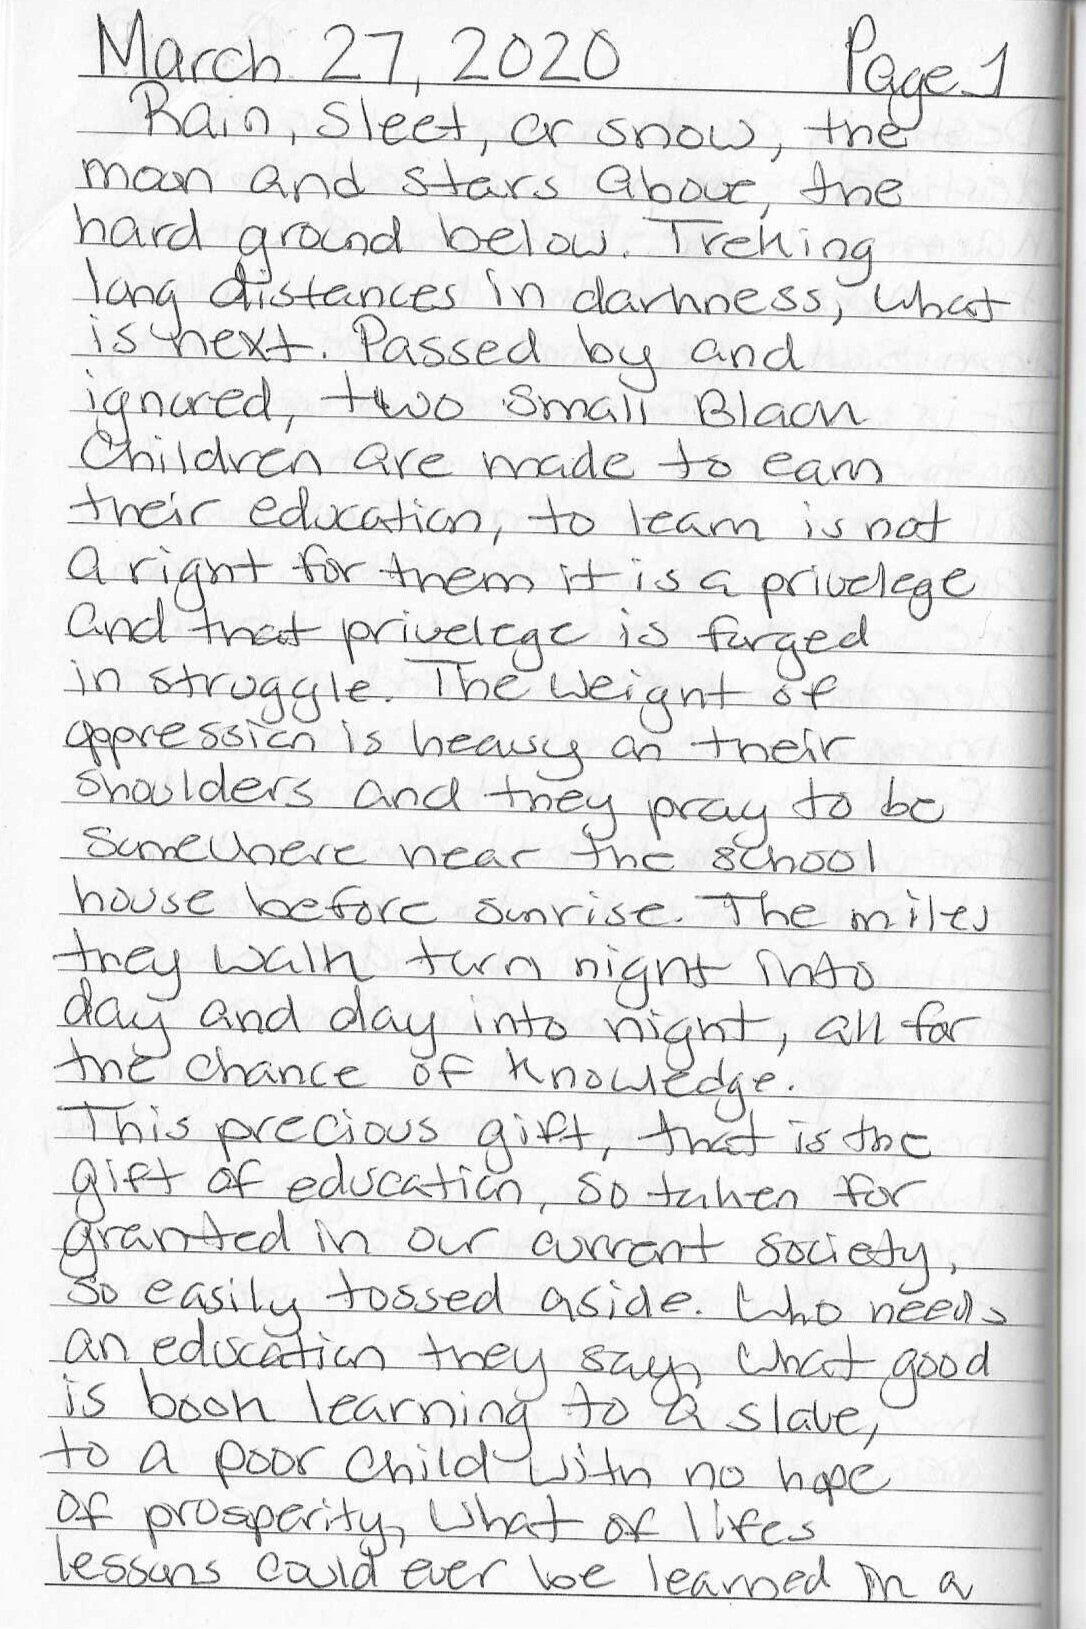 March 27, 2020 Page 1
Rain, Sleet, or snow, the
moon and stars above, the
hard ground below. Treking
long distances in darkness, what
is next. Passed by and
ignored, two small Black
Children are made to earn
their education, to learn is not
a right for them it is a privelege
and that privelege is forged
in struggle. The weight of
oppression is heavy on their
shoulders and they pray to be
somewhere near the school
house before sunrise. The miles
they walk turn night into
day and day into night, all for
the chance of knowledge.
This precious gift, that is the
gift of education, so taken for
granted in our current society,
so easily tossed aside. Who needs
an education they say, what good
is book learning to a slave,
to a poor child with no hope
of prosperity, what of lifes
lessons could ever be learned in a